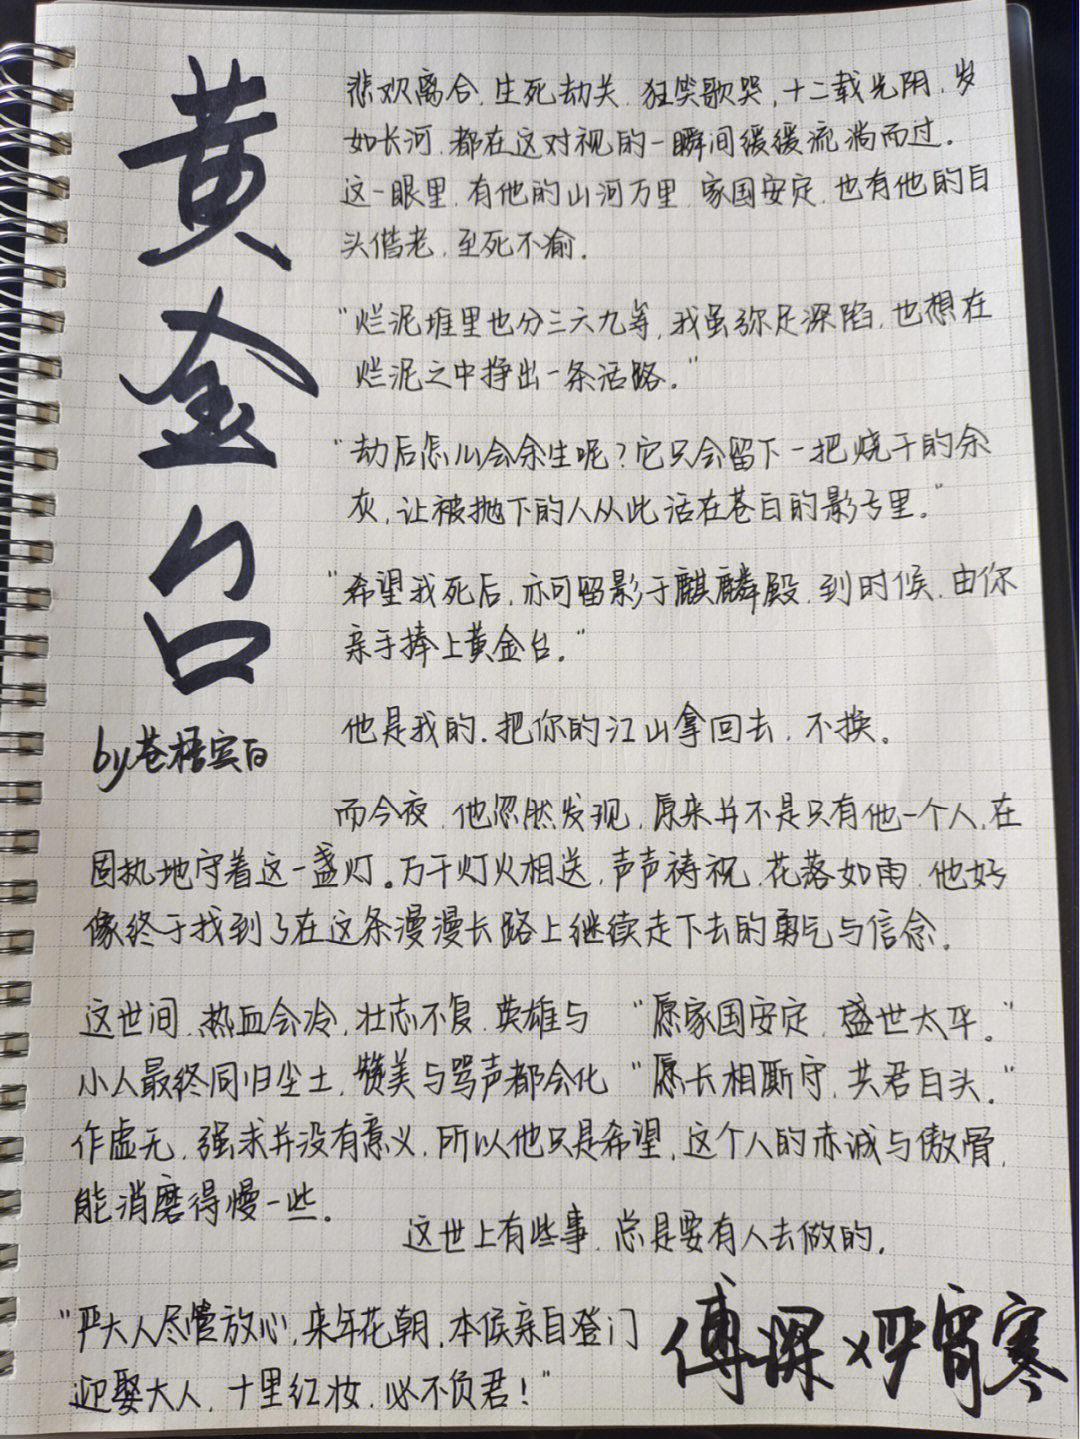 黄金台
by苍梧宾白
悲欢离合,生死劫关,狂笑歌哭,十二载光阴,岁
如长河,都在这对视的一瞬间缓缓流淌而过。
这一眼里,有他的山河万里,家国安定,也有他的白
头偕老,至死不渝。
“烂泥堆里也分三六九等,我虽弥足深陷,也想在
烂泥之中挣出一条活路。”
“劫后怎么会余生呢?它只会留下一把烧干的余
灰,让被抛下的人从此活在苍白的影子里。”
“希望我死后,亦可留影于麒麟殿,到时候,由你
亲手捧上黄金台。”
他是我的,把你的江山拿回去,不换。
而今夜,他忽然发现,原来并不是只有他一个人,在
固执地守着这一盏灯。万千灯火相送,声声祷祝,花落如雨,他好
像终于找到了在这条漫漫长路上继续走下去的勇气与信念。
这世间,热血会冷,壮志不复,英雄与
小人最终同归尘土,赞美与骂声都会化
作虚无,强求并没有意义,所以他只是希望,这个人的赤诚与傲骨,
能消磨得慢一些。
“愿家国安定,盛世太平。”
“愿长相厮守,共君白头。”
这世上有些事,总是要有人去做的。
“严大人尽管放心,来年花朝,本侯亲自登门
迎娶大人,十里红妆,必不负君!”
傅深×严宵寒